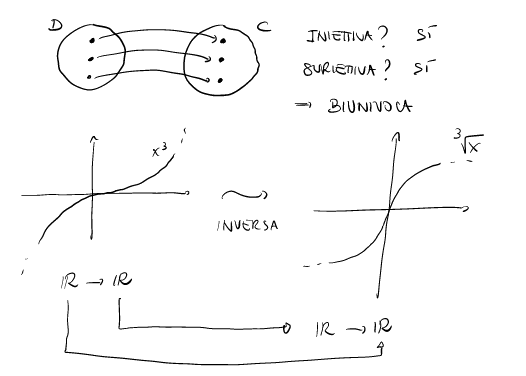 D C
INIETTIVA? SÌ
SURIETTIVA? SÌ
→ BIUNIVOCA
x³
³√x
INVERSA
ℝ → ℝ
ℝ → ℝ